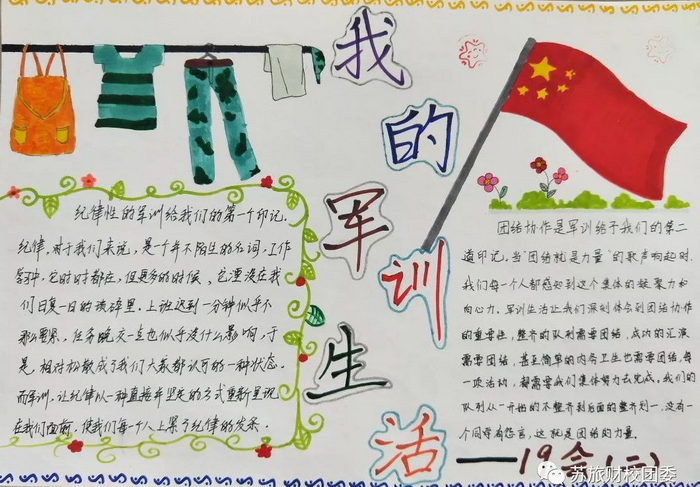 我的军训生活
纪律性的军训给我们的第一个印记。
纪律,对于我们来说,是一个并不陌生的名词,工作
学习中,它时时都在,但更多的时候,它湮没在我
们日复一日的琐碎里。上班迟到一分钟似乎不
那么要紧,任务晚交一点也似乎没什么影响,于
是,相对松散成了我们大家都认可的一种状态。
而军训,让纪律以一种直接并坚定的方式重新呈现
在我们面前,使我们每个人上紧了纪律的发条。
团结协作是军训给予我们的第二
道印记。当"团结就是力量"的歌声响起时,
我们每一个人都感知到这个集体的凝聚力和
向心力。军训生活让我们深刻体会到团结协作
的重要性,整齐的队列需要团结,成功的汇演
需要团结,甚至简单的内务卫生也需要团结,每
一项活动,都需要我们集体努力去完成。我们的
队列从一开始的不整齐到后面的整齐划一,没有一
个同学有怨言,这就是团结的力量。
——19会(二)
苏旅财校团委